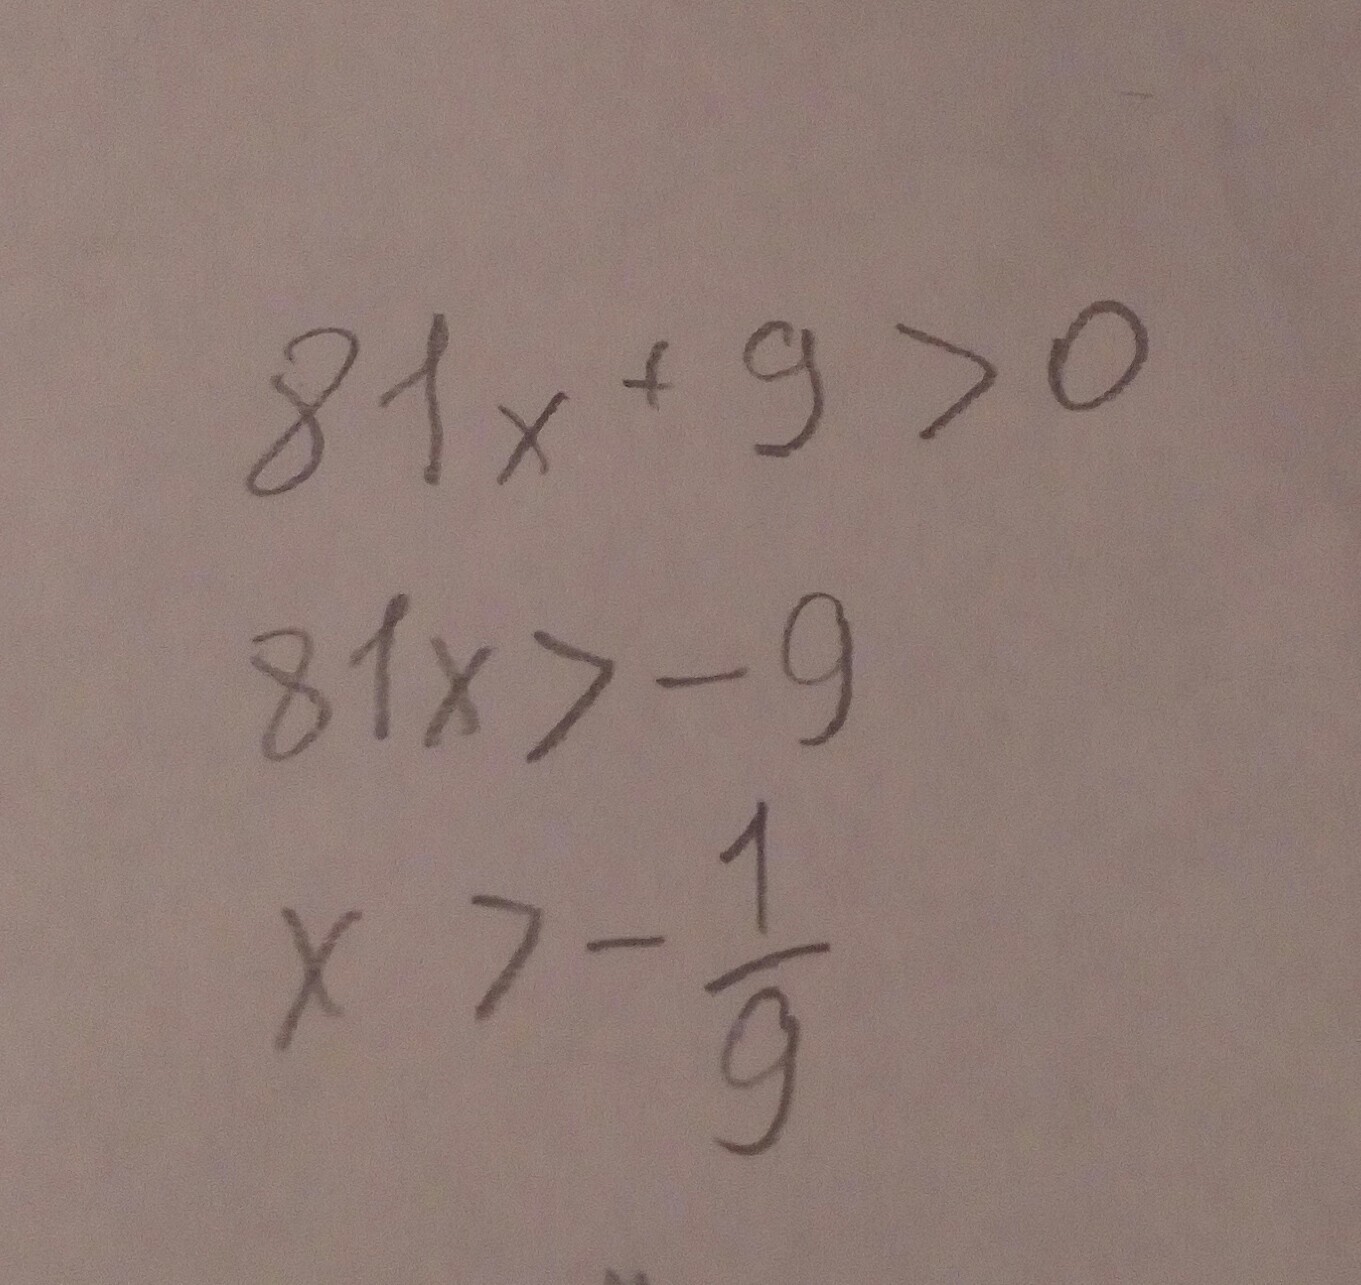 81x + 9 > 0
81x > - 9
x > - 1/9